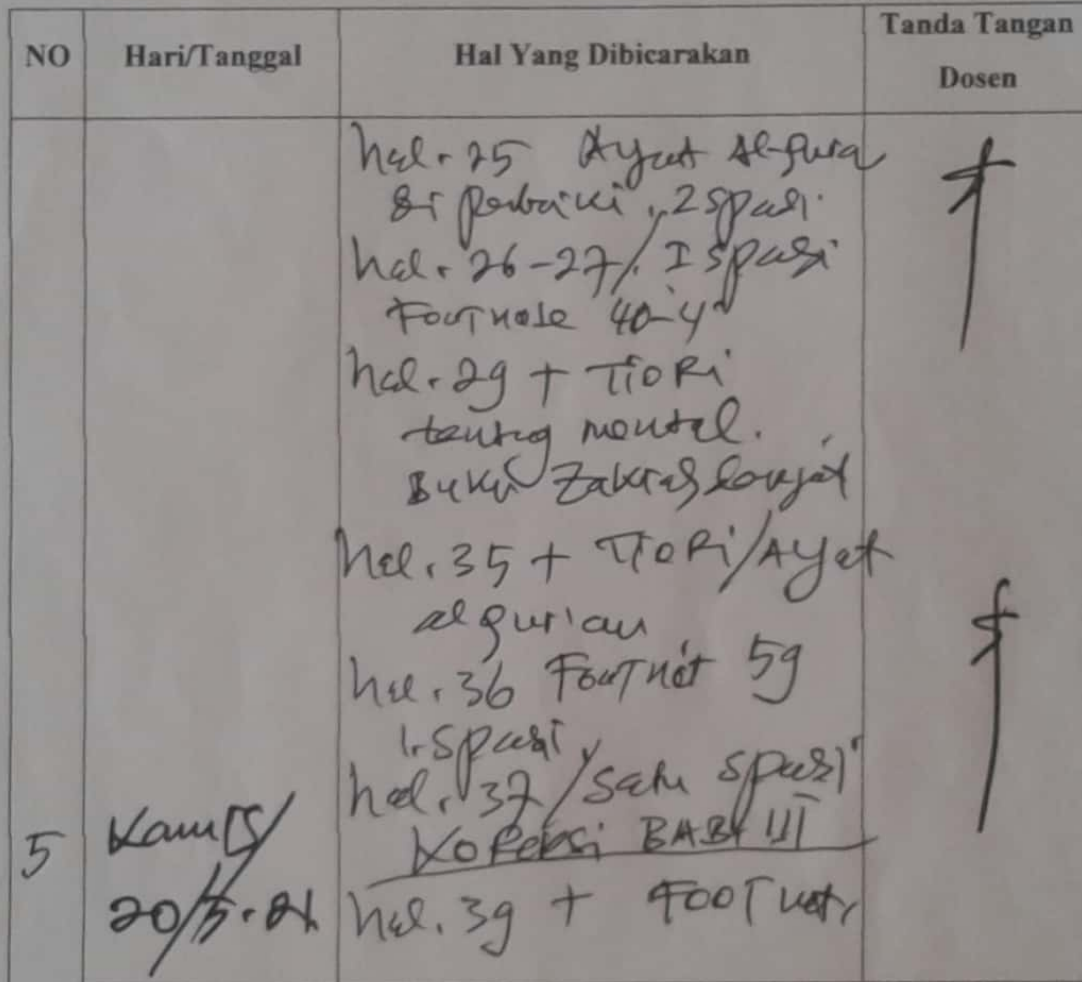 NO Hari/Tanggal Hal Yang Dibicarakan Tanda Tangan Dosen
hal. 25 Ayat Al-Qura
di perbaiki, 2 spasi.
hal. 26-27/. I spasi
Footnote 40-4
hal. 29 + TioRi
tentag mental.
Buku Zakiah
hal. 35 + TioRi/Ayat
alqur'an
hal. 36 Footnot 59
1. spasi,
hal. 37/satu spasi
5 Kamis/ Koreksi BAB III
20/5.21 hal. 39 + Footnot,